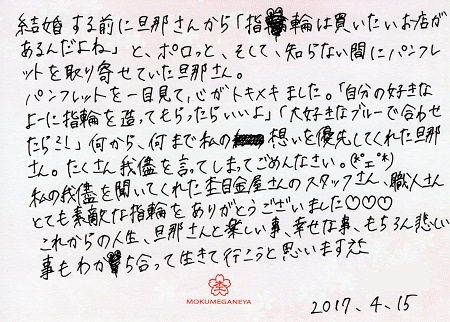 結婚する前に旦那さんから「指輪は買いたいお店が
あるんだよね」と、ポロっと、そして、知らない間にパンフレ
ットを取り寄せていた旦那さん。
パンフレットを一目見て、心がトキメキました。「自分の好きな
よーに指輪を造ってもらったらいいよ」「大好きなブルーで合わせ
たら?!」何から、何まで私の想いを優先してくれた旦那
さん。たくさん我儘を言ってしまってごめんなさい。
私の我儘を聞いてくれた杢目金屋さんのスタッフさん、職人さん
とても素敵な指輪をありがとうございました♡♡♡
これからの人生、旦那さんと楽しい事、幸せな事、もちろん悲しい
事もわかち合って生きて行こうと思います
MOKUMEGANEYA
2017.4.15